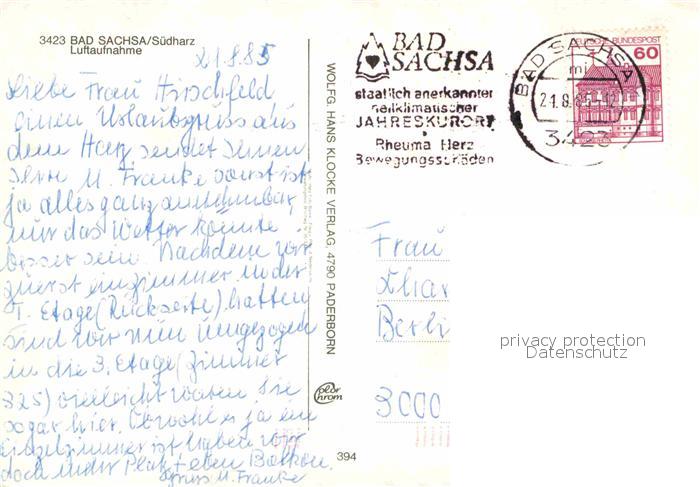 3423 BAD SACHSA/Südharz
Luftaufnahme
21.8.85
Liebe Frau Hirschfeld
einen Urlaubsgruss aus
dem Harz, sendet Ihnen
Ihre M. Franke sonst ist
ja alles ganz annehmbar,
nur das Wetter könnte
besser sein. Nachdem wir
zuerst ein Zimmer in der
1. Etage (Rückseite) hatten
sind wir nun umgezogen
in die 3. Etage (Zimmer
325) vielleicht waren Sie
sogar hier. Obwohl es ja ein
Einzelzimmer ist haben wir
doch mehr Platz + eben Balkon.
Gruss M. Franke
WOLFG. HANS KLOCKE VERLAG, 4790 PADERBORN
color
chrom
394
BAD
SACHSA
staatlich anerkannter
heilklimatischer
JAHRESKURORT
Rheuma Herz
Bewegungsschäden
BAD SACHSA
mi
21.8.85-12
3423
DEUTSCHE BUNDESPOST
60
Frau
Char
Berli
3000
privacy protection
Datenschutz